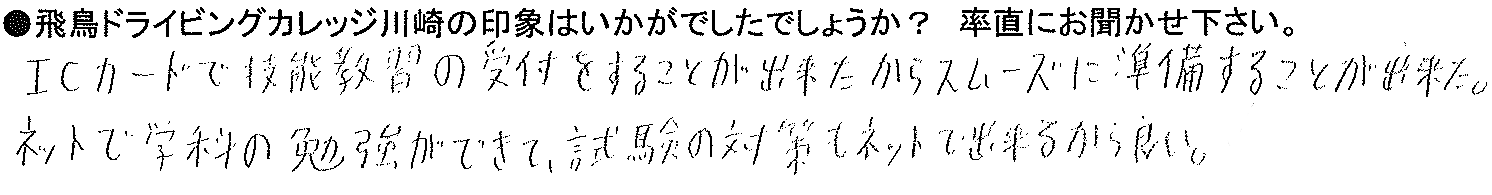 ●飛鳥ドライビングカレッジ川崎の印象はいかがでしたでしょうか？　率直にお聞かせ下さい。
ICカードで技能教習の受付をすることが出来たからスムーズに準備することが出来た。
ネットで学科の勉強ができて、試験の対策もネットで出来るから良い。